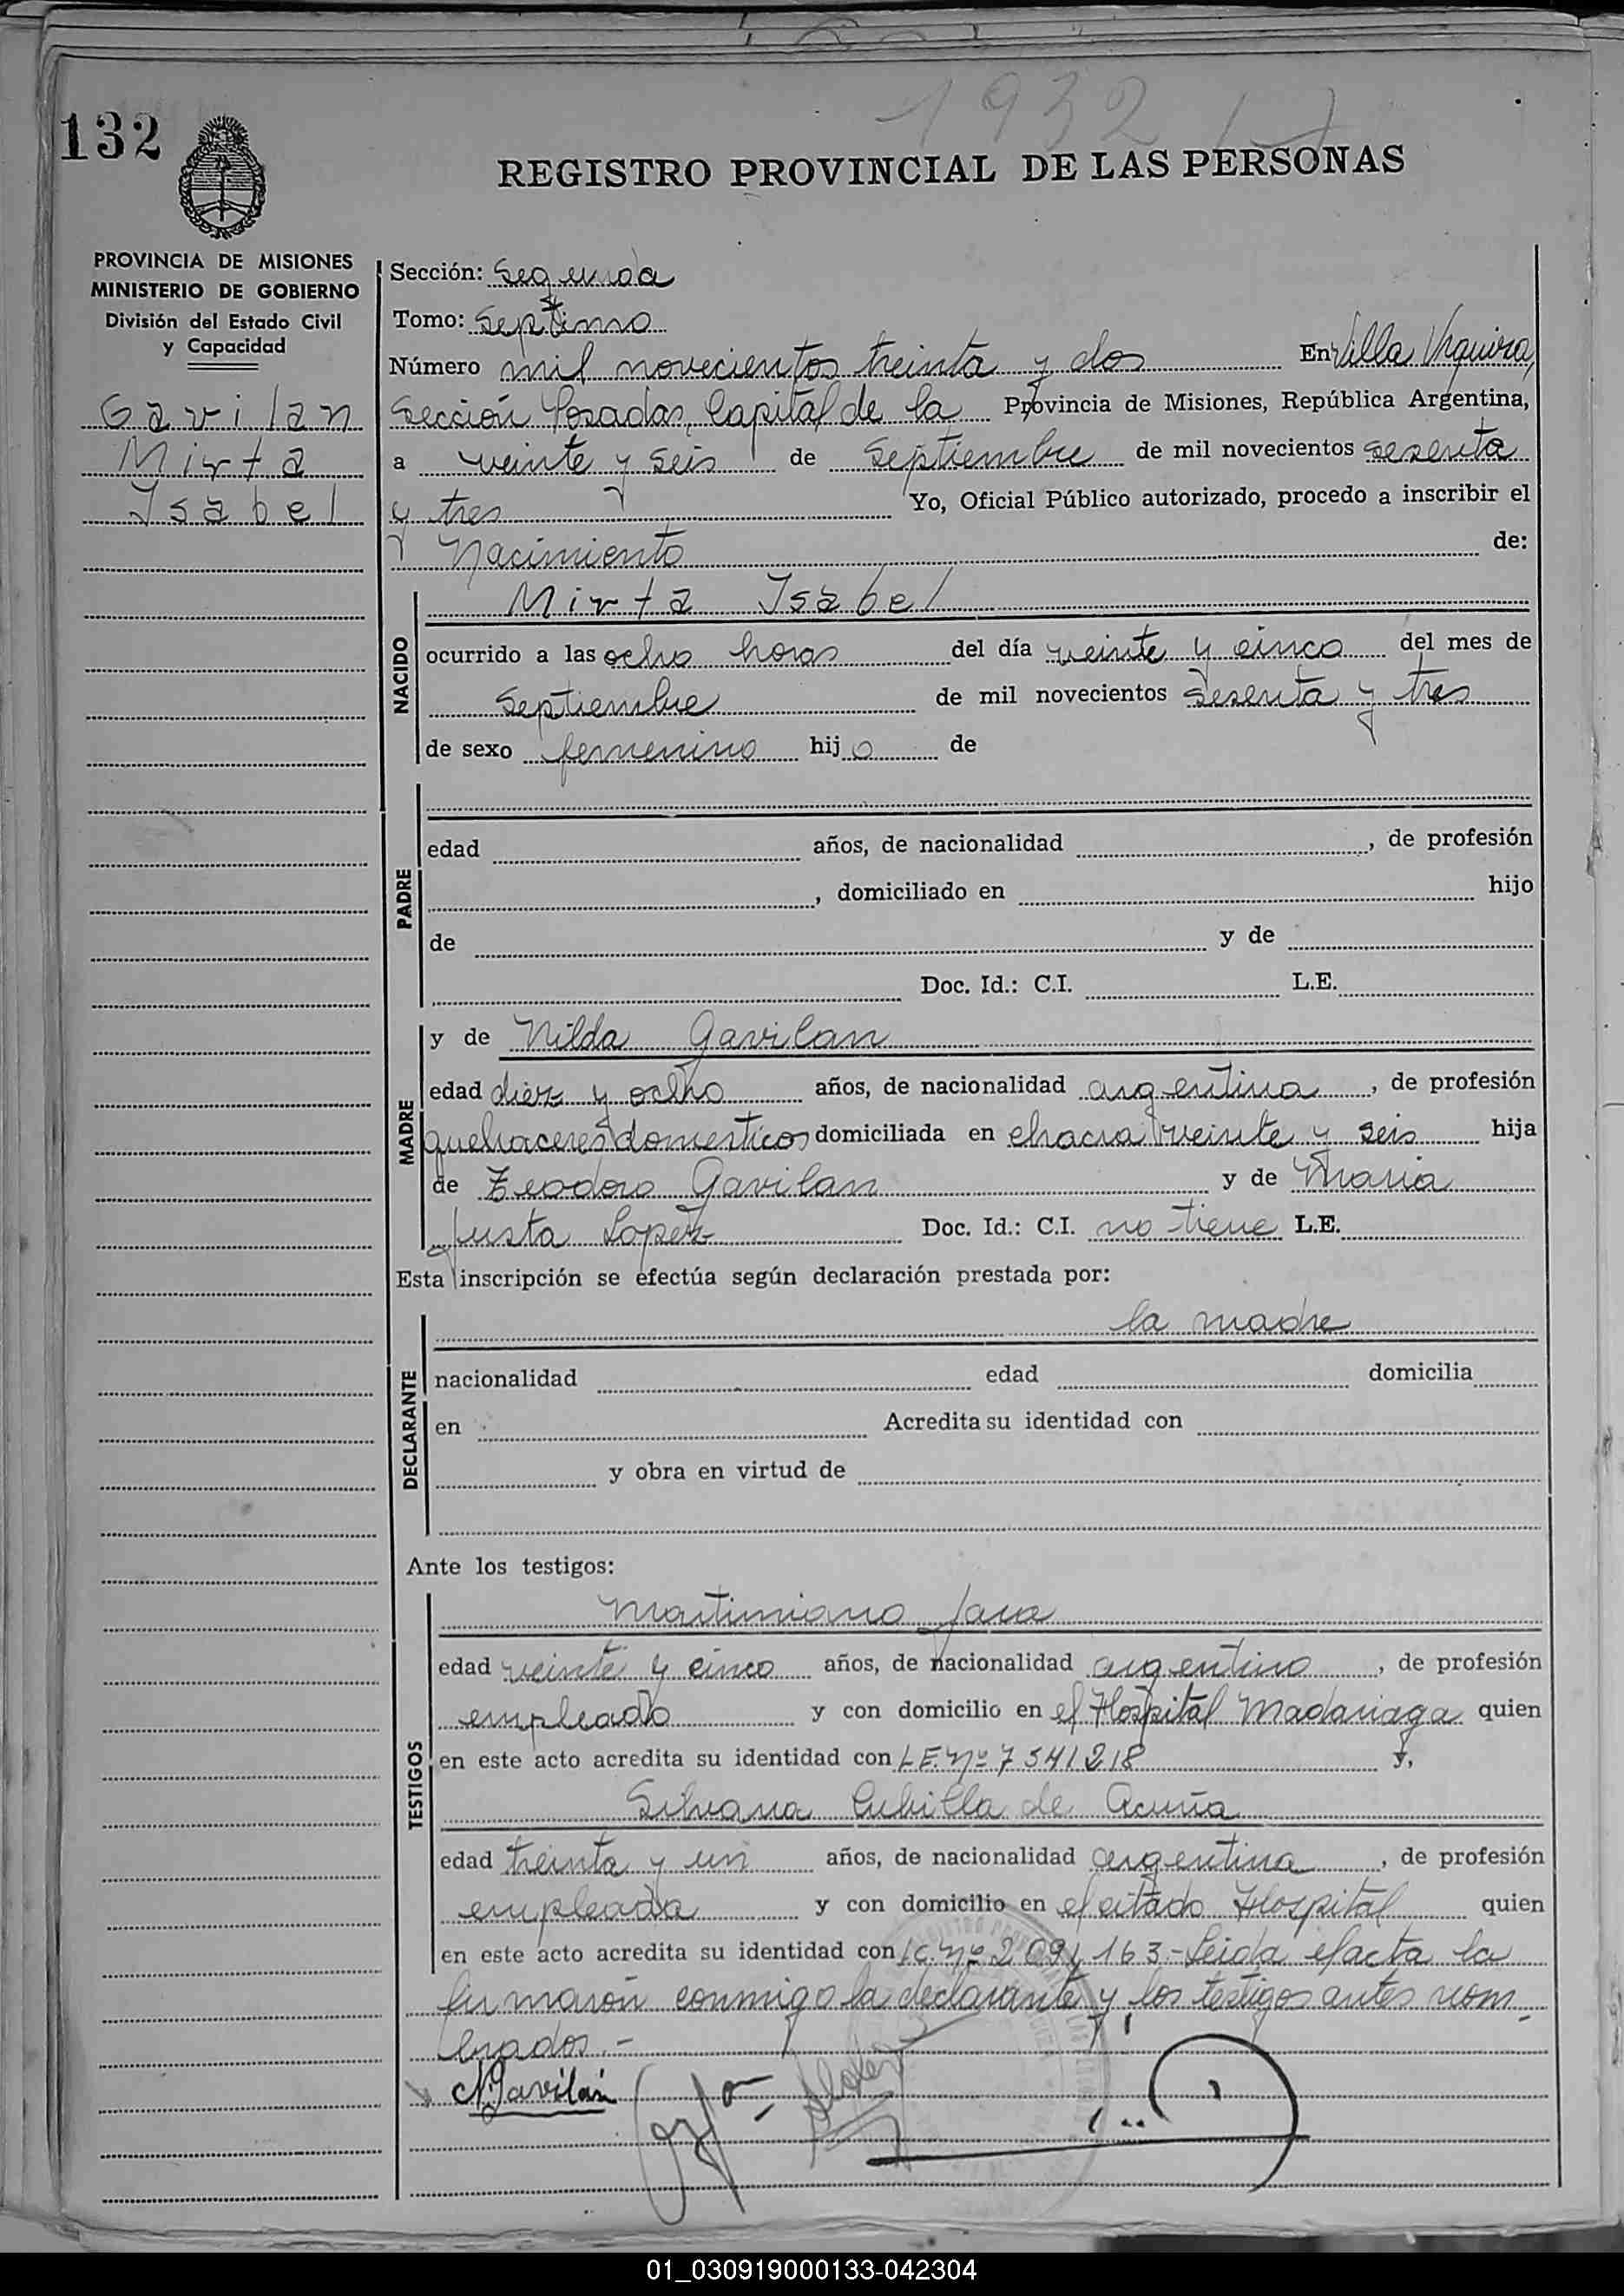 1932
132
REGISTRO PROVINCIAL DE LAS PERSONAS
PROVINCIA DE MISIONES
MINISTERIO DE GOBIERNO
División del Estado Civil
y Capacidad
Gavilan
Mirta
Isabel
Sección: Segunda
Tomo: Septimo
Número mil novecientos treinta y dos En Villa Urquiza,
Sección Posadas, Capital de la Provincia de Misiones, República Argentina,
a veinte y seis de Septiembre de mil novecientos sesenta
y tres Yo, Oficial Público autorizado, procedo a inscribir el
Nacimiento de:
NACIDO
Mirta Isabel
ocurrido a las ocho horas del día veinte y cinco del mes de
Septiembre de mil novecientos sesenta y tres
de sexo femenino hij o de
PADRE
edad años, de nacionalidad , de profesión
, domiciliado en hijo
de y de
Doc. Id.: C.I. L.E.
MADRE
y de Nilda Gavilan
edad diez y ocho años, de nacionalidad argentina , de profesión
quehaceres domesticos domiciliada en chacra veinte y seis hija
de Teodoro Gavilan y de Maria
Justa Lopez Doc. Id.: C.I. no tiene L.E.
Esta inscripción se efectúa según declaración prestada por:
DECLARANTE
la madre
nacionalidad edad domicilia
en Acredita su identidad con
y obra en virtud de
Ante los testigos:
TESTIGOS
Martimiano Jara
edad veinte y cinco años, de nacionalidad argentino , de profesión
empleado y con domicilio en el Hospital Madariaga quien
en este acto acredita su identidad con L.E. Nº 7541218 y,
Silvana Cubilla de Acuña
edad treinta y un años, de nacionalidad argentina , de profesión
empleada y con domicilio en el citado Hospital quien
en este acto acredita su identidad con L.C. Nº 2.091.163.- Leida el acta la
firmaron conmigo la declarante y los testigos antes nom_
brados.-
N.Gavilán
01_030919000133-042304